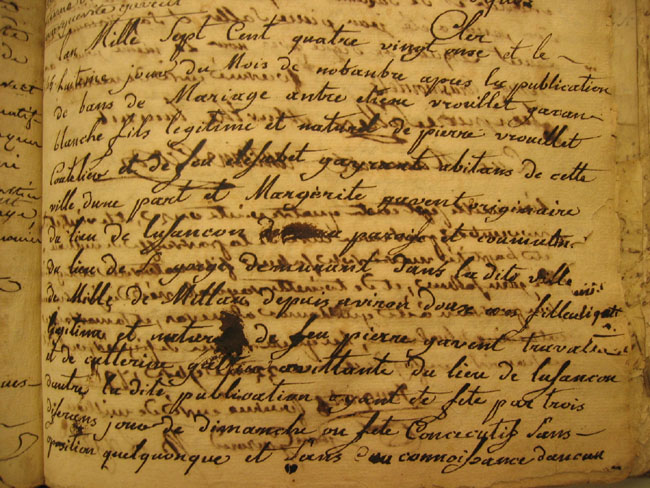 lan Mille Sept Cent quatre vingt onse et le
huitieme jour du Mois de nobanbre apres la publication
de bans de Mariage antre etiene vrouillet
blanche fils legitime et naturel de pierre vrouillet
Coutelier et de feu elisabet gayraut abitans de cette
ville dune part et Margerite gavent originaire
du lieu de lusancon paroise et
du lieu de St gorge demurant dans la dite ville
de Mille de Millau depuis aviron douse ans fille
legitime et naturel de feu pierre gavent travaileur
et de catterine avittante du lieu de lusancon
dautre la dite publication ayant ete fete par trois
diferans jour de dimanche ou fete Concecutifs Sans
oposition quelquonque et Sans au connoissance daucun